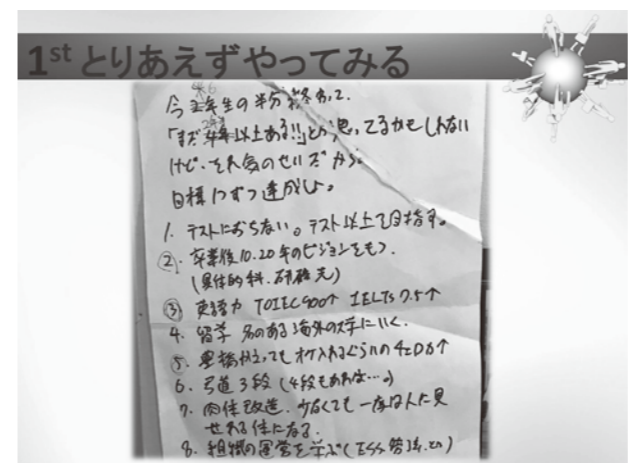 1st とりあえずやってみる
今 年生の半分終わって.
「まだ 年以上ある!!」とか思ってるかもしれない
けど、それ気のせいだから。
目標1つずつ達成しろ。
1. テストにおちない。テスト以上を目指す。
②. 卒業後10.20年のビジョンをもつ.
(具体的科.研修先)
③ 英語力 TOIEC900↑ IELTS 7.5↑
4. 留学 名のある海外の大学にいく.
⑤. 楽器 オケ入れるぐらいの
6. 弓道3段(4段もあれば…。)
7. 肉体改造. 少なくても一度は人に見
せれる体になる.
8. 組織の運営を学ぶ(ESS etc)